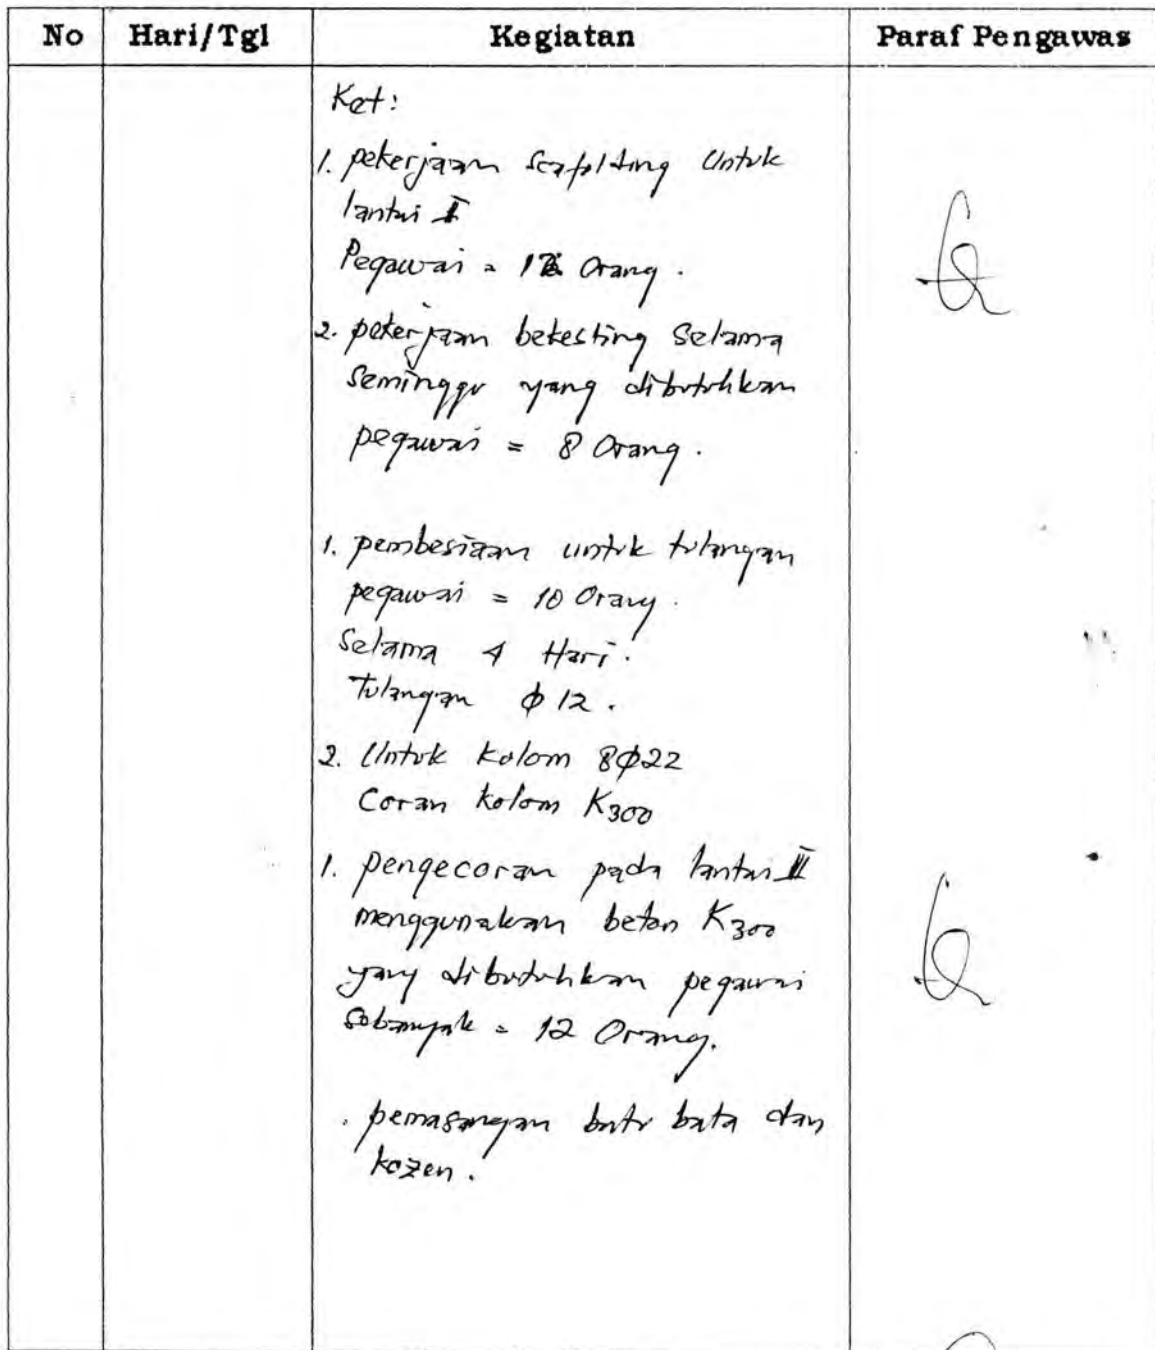 No Hari/Tgl Kegiatan Paraf Pengawas
Ket:
1. pekerjaan Scafolding Untuk
lantai
Pegawai = Orang.
2. pekerjaan bekesting Selama
Seminggu yang dibutuhkan
pegawai = 8 Orang.
1. pembesiaan untuk tulangan
pegawai = 10 Orang.
Selama 4 Hari.
Tulangan ϕ 12.
2. Untuk kolom 8ϕ22
Coran kolom K300
1. pengecoran pada lantai III
menggunakan beton K300
yang dibutuhkan pegawai
sebanyak = 12 Orang.
. pemasangan batu bata dan
kozen.